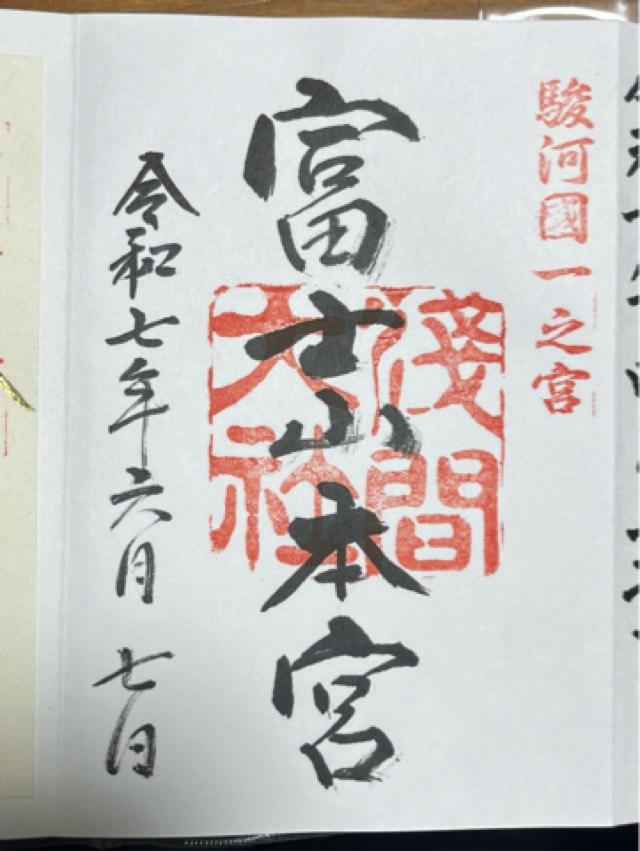 駿河國一之宮
富士山本宮
淺間
大社
令和七年六月七日